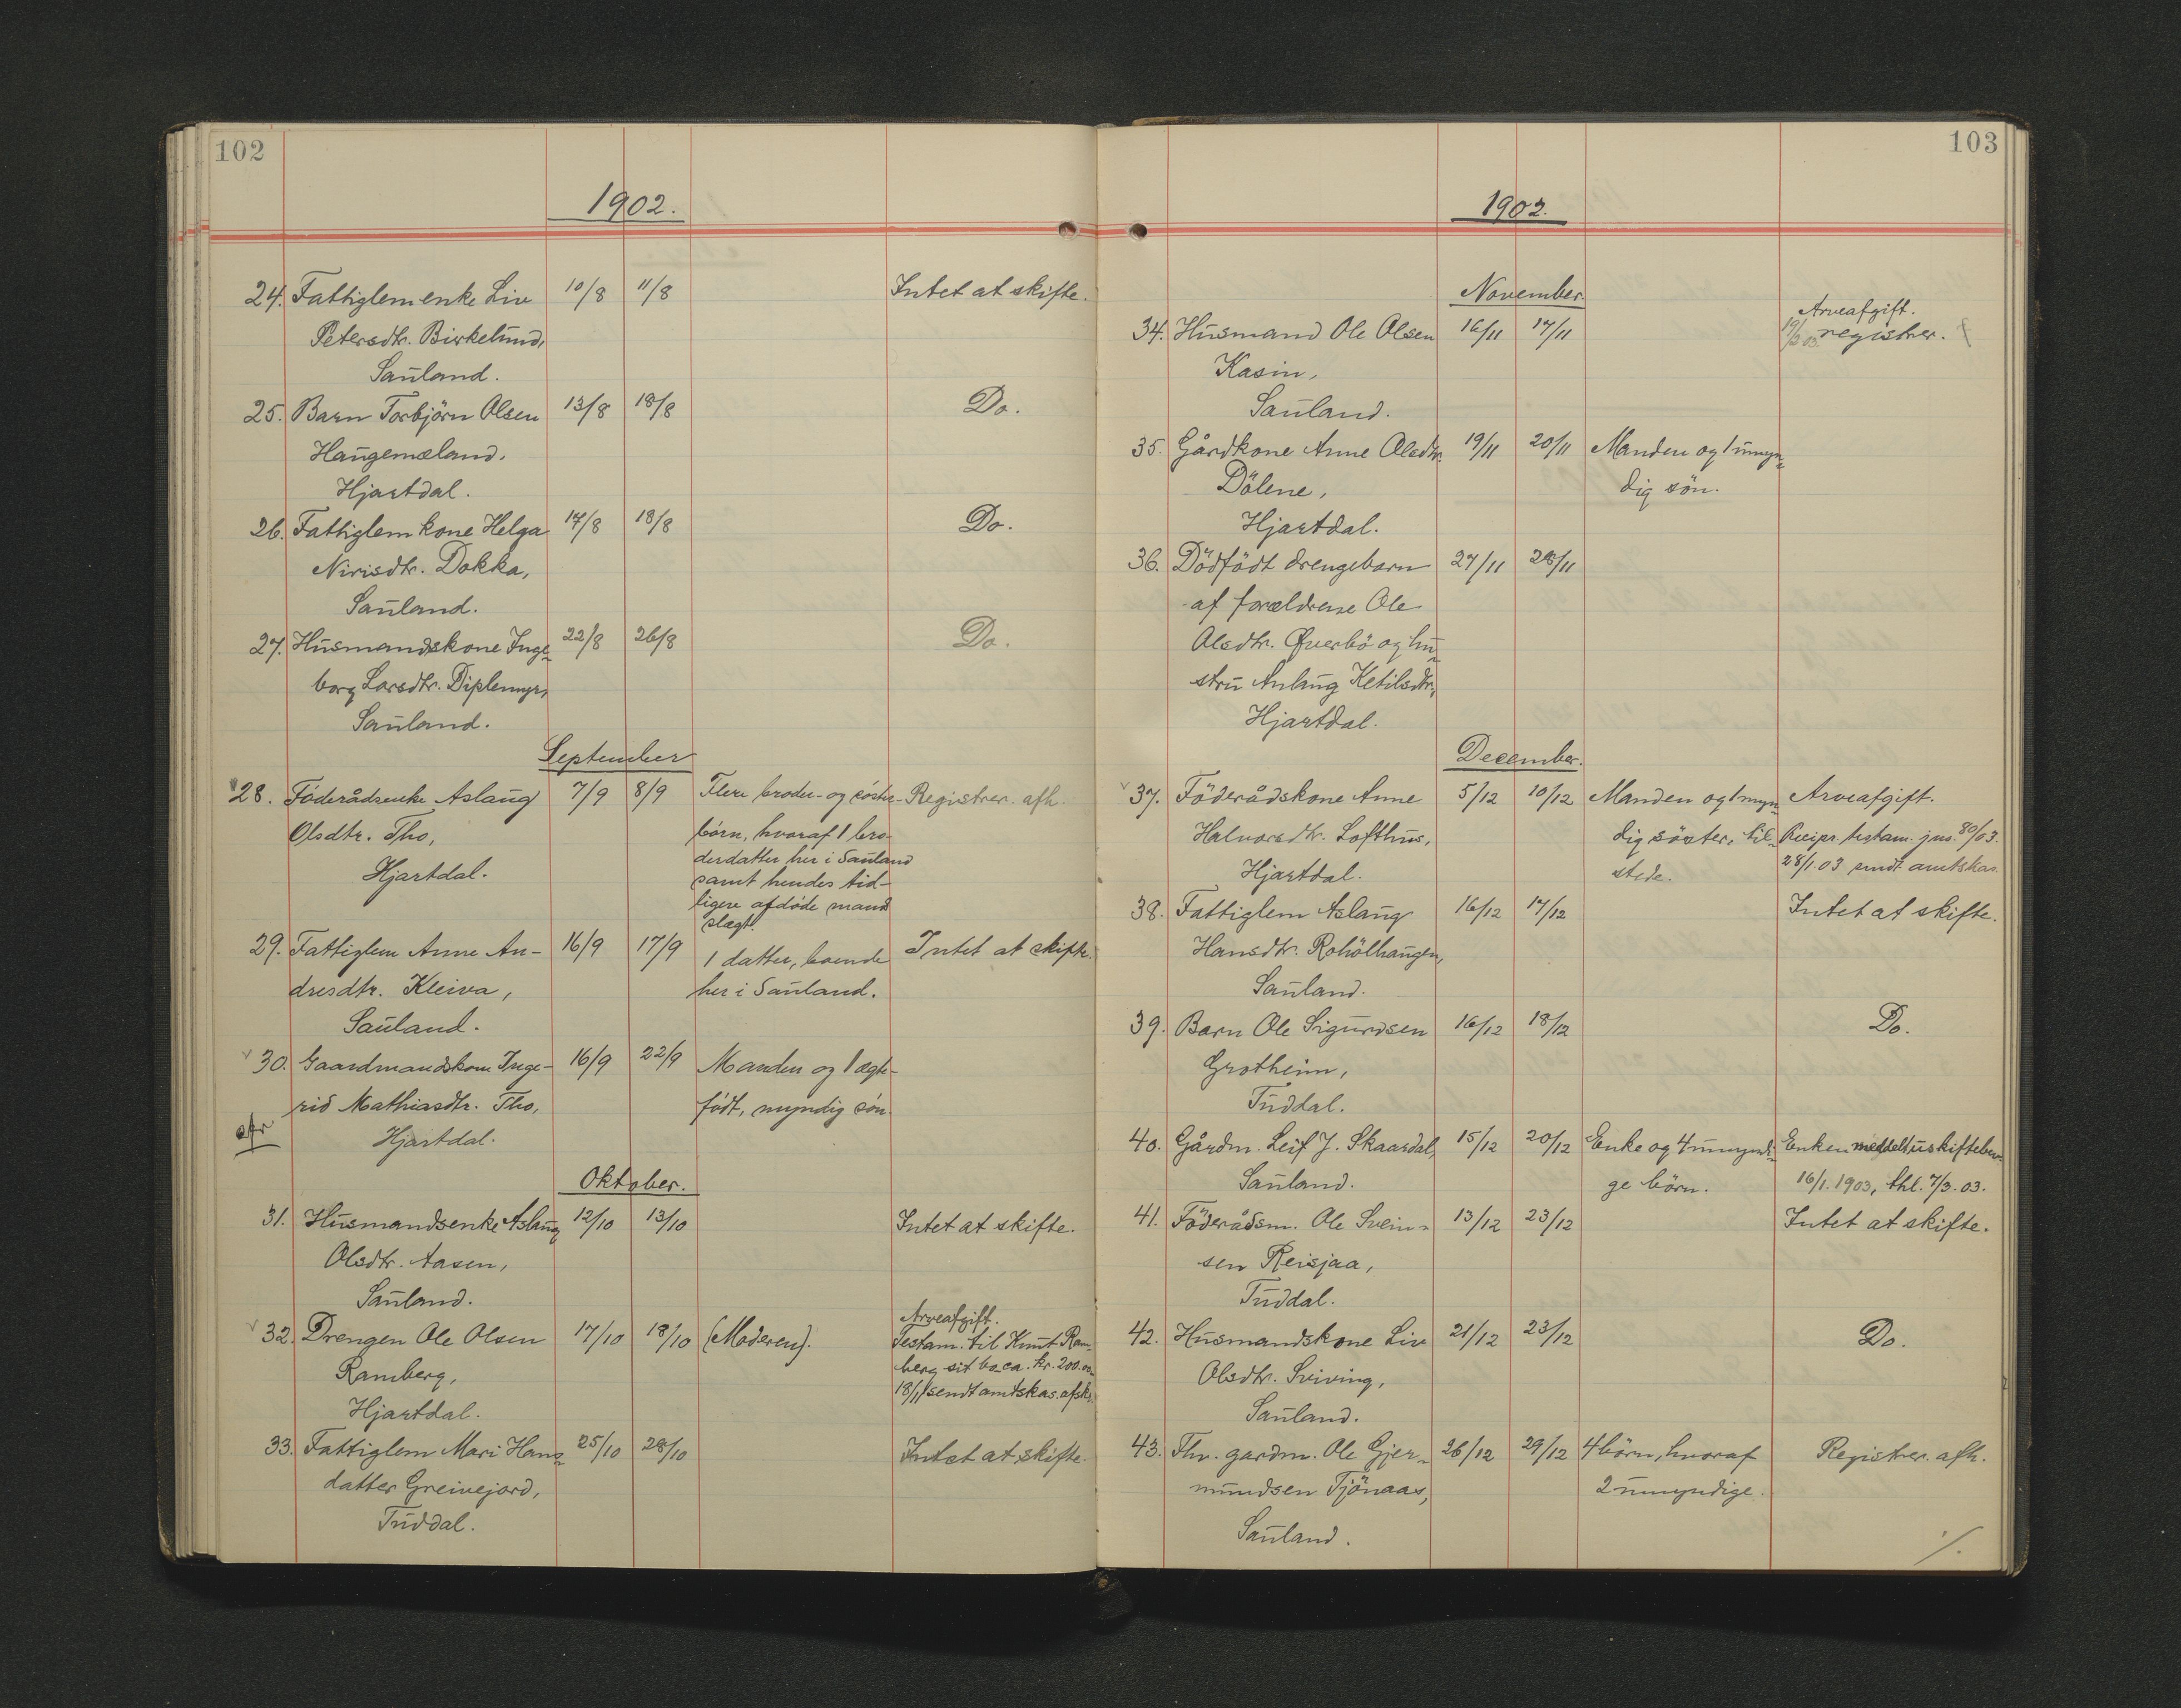 102
1902.
24. Fattiglemenke Liv 10/8 11/8 Intet at skifte.
Petersdtr. Birkelund,
Sauland.
25. Barn Torbjörn Olsen 13/8 18/8 Do.
Haugemæland,
Hjartdal.
26. Fattiglem kone Helga 17/8 18/8 Do.
Nirisdtr. Dokka,
Sauland.
27. Husmandskone Inge- 22/8 26/8 Do.
borg Larsdtr. Diplemyr,
Sauland.
September
28. Föderådsenke Aslaug 7/9 8/9 Flere broder- og söster- Registrer. afh.
Olsdtr. Tho, börn, hvoraf 1 bro-
derdatter her i Sauland
Hjartdal. samt hendes tid-
ligere afdöde mand
slægt.
29. Fattiglem Anne An- 16/9 17/9 1 datter, boende Intet at skifte.
dresdtr. Kleiva, her i Sauland.
Sauland.
30. Gaardmandskone Inge- 16/9 22/9 Manden og 1 ægte-
rid Mathiasdtr. Tho, födt, myndig sön
Hjartdal.
Oktober.
31. Husmandsenke Aslaug 12/10 13/10 Intet at skifte.
Olsdtr. Aasen,
Sauland.
Arveafgift.
32. Drengen Ole Olsen 17/10 18/10 (Moderen). Testam. til Knut Ram-
Ramberg, berg sit bo ca. kr. 200.00
18/11 sendt amtskas. afskr.
Hjartdal.
33. Fattiglem Mari Hans- 25/10 28/10 Intet at skifte.
datter Greivejord,
Tuddal.
103
1902.
November.
Arveafgift.
34. Husmand Ole Olsen 16/11 17/11 registrer.
Kasin,
Sauland.
35. Gårdkone Anne Olsdtr. 19/11 20/11 Manden og 1 umyn-
Dölene, dig sön.
Hjartdal.
36. Dödfödt drengebarn 27/11 28/11
af forældrene Ole
Olsdtr. Øverbö og hu-
stru Aslaug Ketilsdtr.,
Hjartdal.
December.
37. Föderådskone Anne 5/12 10/12 Manden og 1 myn- Arveafgift.
Halvorsdtr. Lofthus, dig söster, til- Recipr. testam. jns. 80/03.
Hjartdal. stede. 28/1.03 sendt amtskas.
38. Fattiglem Aslaug 16/12 17/12 Intet at skifte.
Hansdtr. Rohölhaugen,
Sauland.
39. Barn Ole Sigurdsen 16/12 18/12 Do.
Grotheim,
Tuddal.
40. Gårdm. Leif J. Skaardal, 15/12 20/12 Enke og 4 umyndi- Enken meddelt uskiftebev.
Sauland. ge börn. 16/1. 1903, thl. 7/3. 03.
41. Föderådsm. Ole Svein- 13/12 23/12 Intet at skifte.
sen Reisjaa,
Tuddal.
42. Husmandskone Liv 21/12 23/12 Do.
Olsdtr. Sviving,
Sauland.
43. Fhv. gardm. Ole Gjer- 26/12 29/12 4 börn, hvoraf Registrer. afh.
mundsen Tjönaas, 2 umyndige.
Sauland.